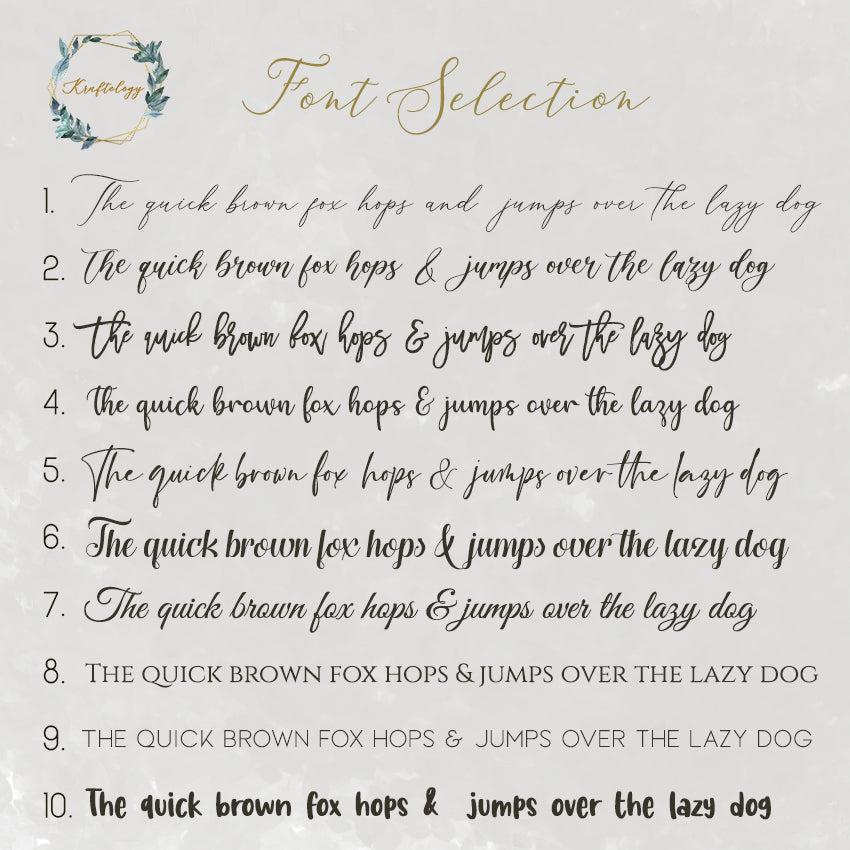 Kraftology
Font Selection
1. The quick brown fox hops and jumps over the lazy dog
2. The quick brown fox hops & jumps over the lazy dog
3. the quick brown fox hops & jumps over the lazy dog
4. the quick brown fox hops & jumps over the lazy dog
5. The quick brown fox hops & jumps over the lazy dog
6. The quick brown fox hops & jumps over the lazy dog
7. The quick brown fox hops & jumps over the lazy dog
8. THE QUICK BROWN FOX HOPS & JUMPS OVER THE LAZY DOG
9. THE QUICK BROWN FOX HOPS & JUMPS OVER THE LAZY DOG
10. The quick brown fox hops & jumps over the lazy dog